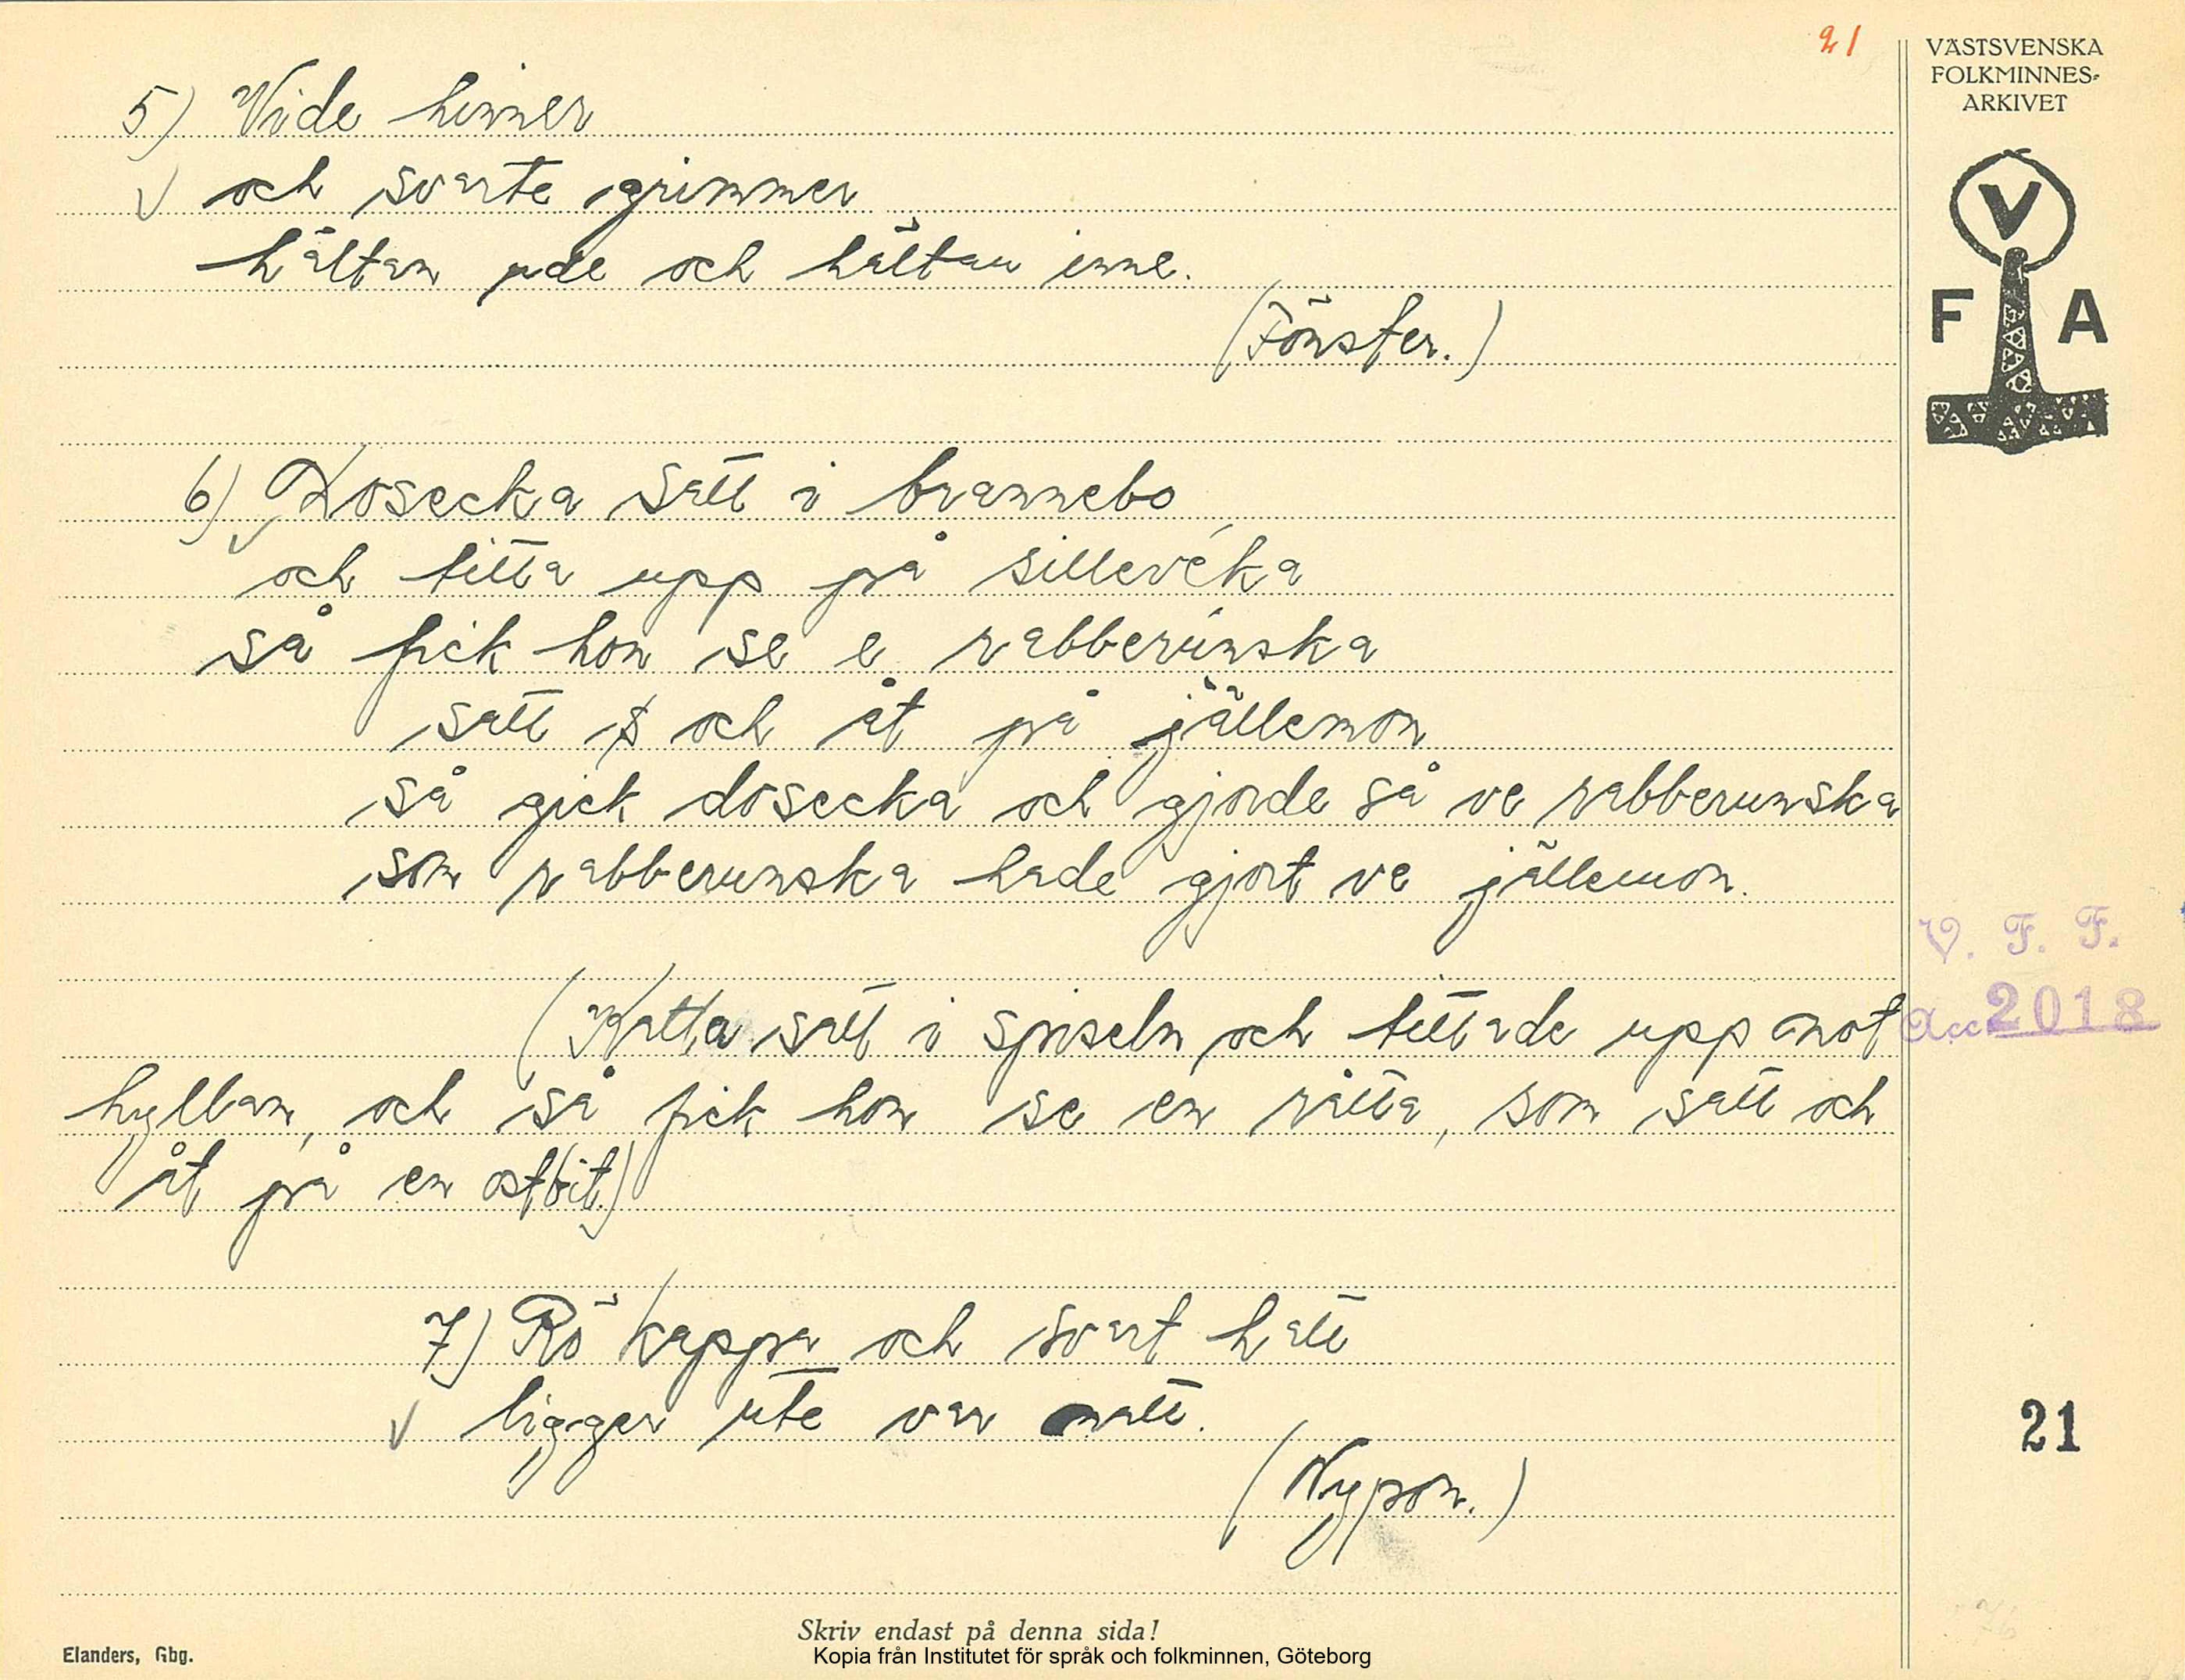 21
VÄSTSVENSKA
FOLKMINNES-
ARKIVET
V
F A
5) Vide hinner
och svarte grimmer
hältan ude och hältan inne.
(Fönster.)
6) Dosecka satt i brannebo
och titta upp på silleveka
så fick hon se e rabberunska
satt och åt på jällemon
så gick dosecka och gjorde så ve rabberunska
som rabberunska hade gjort ve jällemon.
(Katta satt i spiseln och tittade upp mot
hyllan, och så fick hon se en råtta, som satt och
åt på en ostbit.)
7) Rö kappa och svart hatt
ligger ute var natt.
(Nypon.)
V. F. F.
Acc 2018
21
Skriv endast på denna sida!
Elanders, Gbg.
Kopia från Institutet för språk och folkminnen, Göteborg